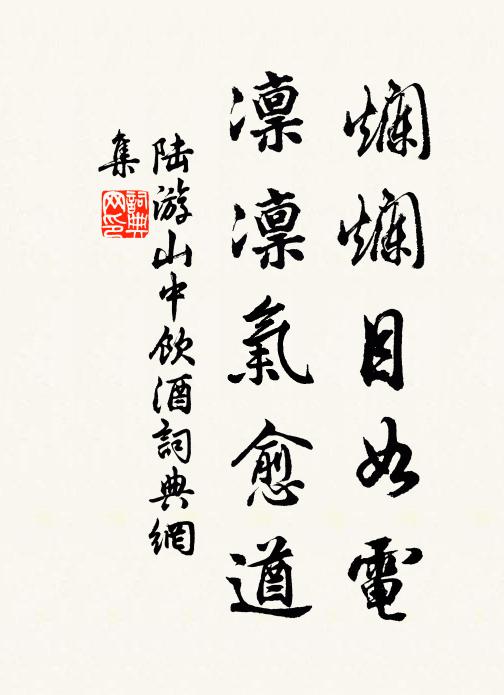 爛爛目如電
凜凜氣愈遒
陸游山中飲酒詞典網
集
詞典
网印